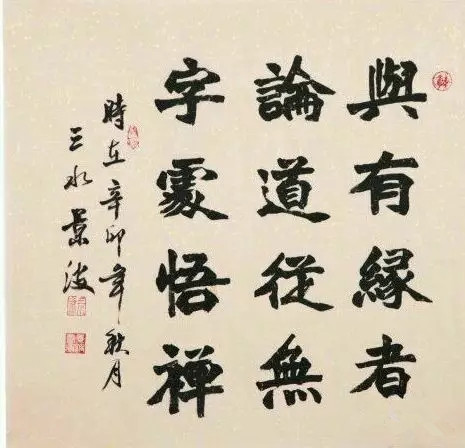 與有緣者
論道從無
字處悟禅
時在辛卯年秋月
三水景波